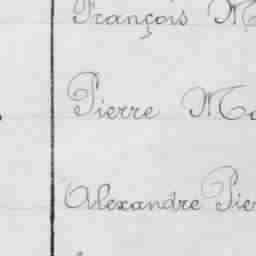 François M
Pierre Mo
Alexandre Pier